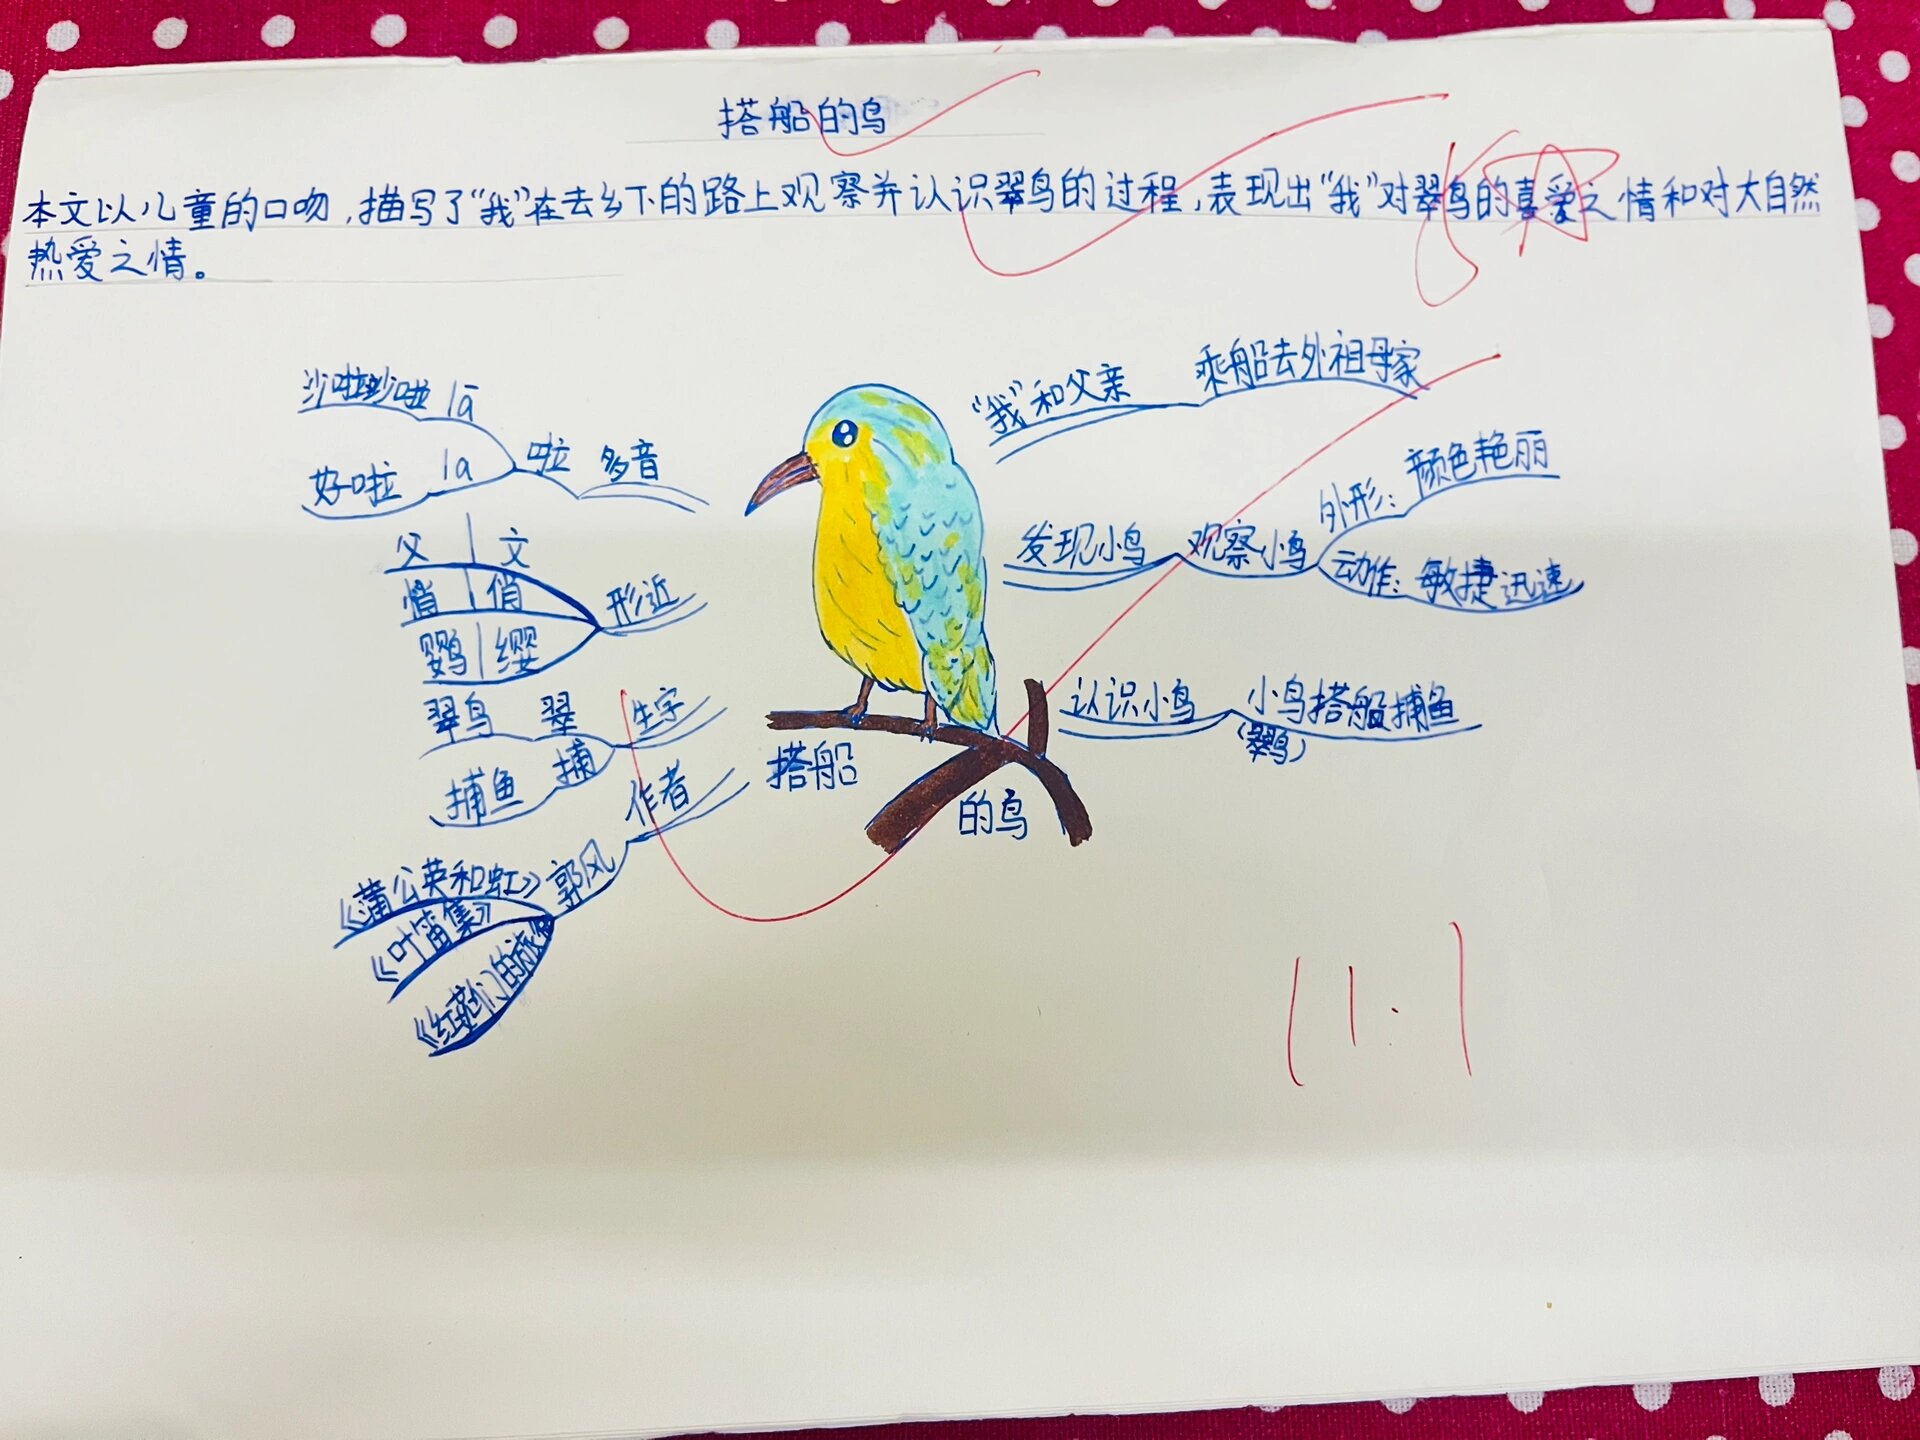 搭船的鸟
本文以儿童的口吻,描写了“我”在去乡下的路上观察并认识翠鸟的过程,表现出“我”对翠鸟的喜爱之情和对大自然
热爱之情。
沙啦沙啦 lā
好啦 la
啦 多音
父 | 文
悄 | 俏
鹦 | 缨
形近
翠鸟 翠
捕鱼 捕
生字
作者
郭风
《蒲公英和虹》
《叶笛集》
搭船
的鸟
“我”和父亲 乘船去外祖母家
发现小鸟 观察小鸟
外形: 颜色艳丽
动作: 敏捷迅速
认识小鸟 小鸟搭船捕鱼
11.1